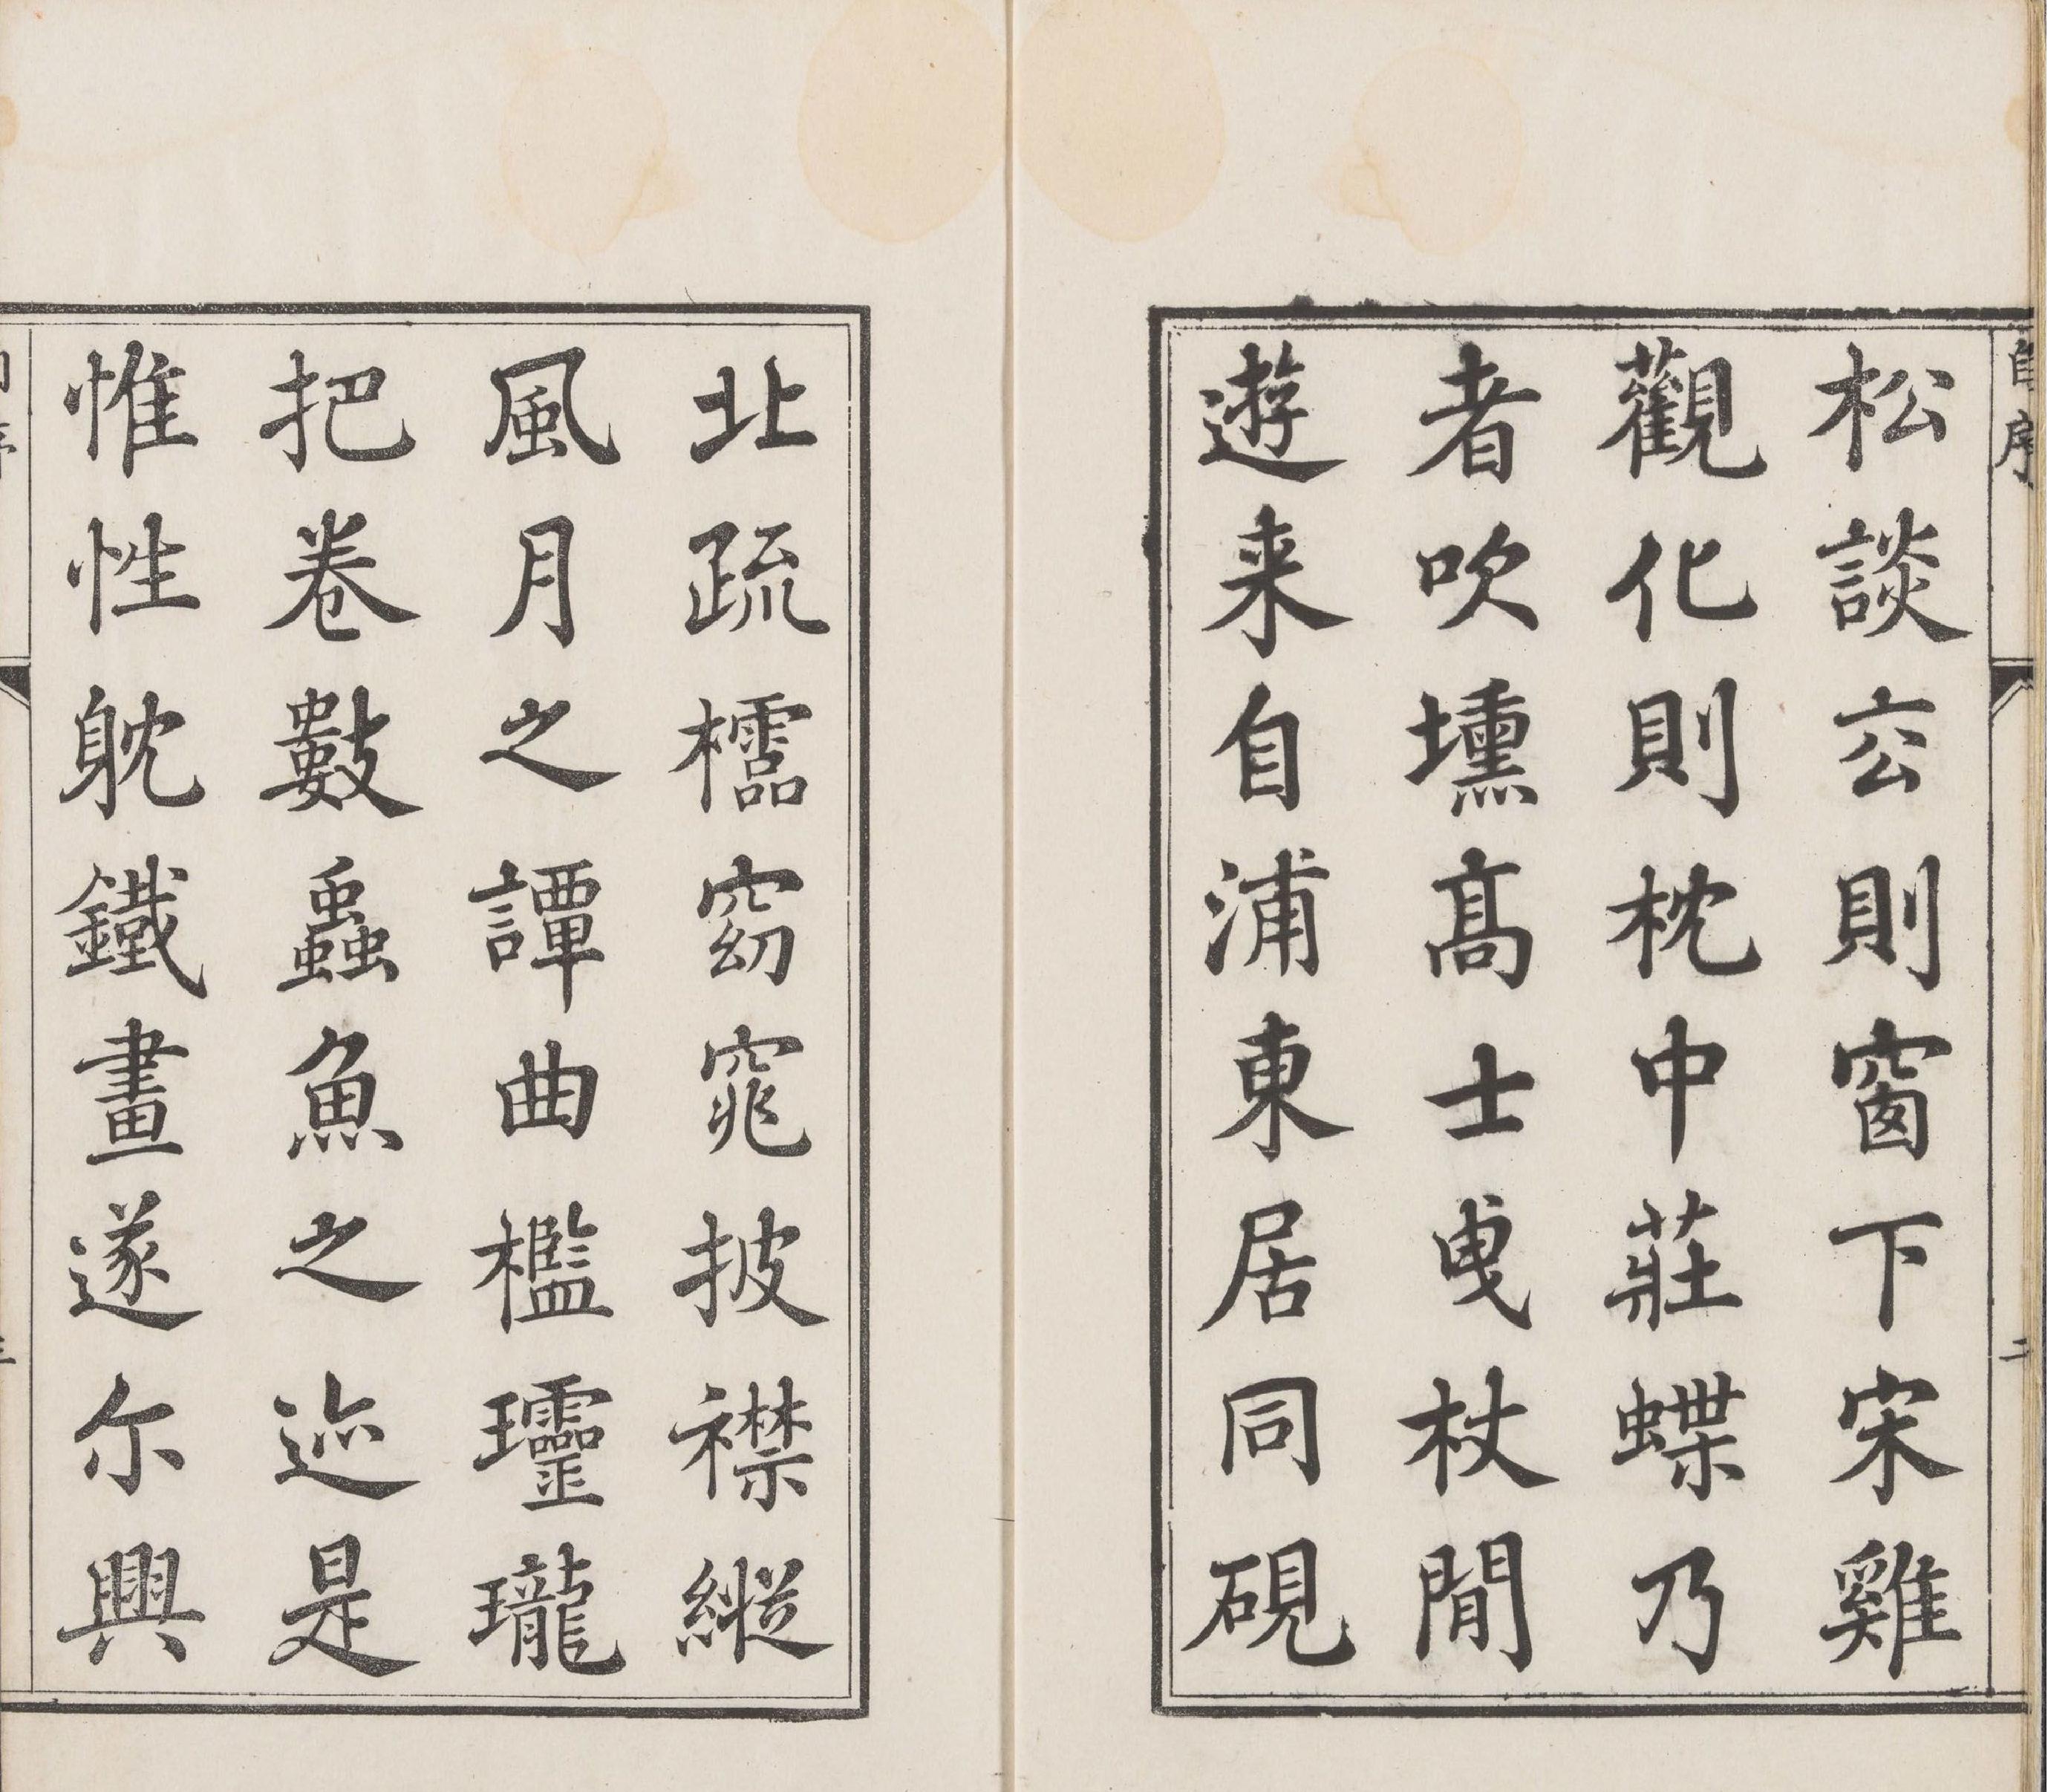 自序
二
松談玄則窗下宋雞
觀化則枕中莊蝶乃
者吹壎高士曳杖閒
遊来自浦東居同硯
北疏櫺窈窕披襟縱
風月之譚曲檻瓏瓏
把卷數蟲魚之迹是
惟性躭鐵畫遂尔興